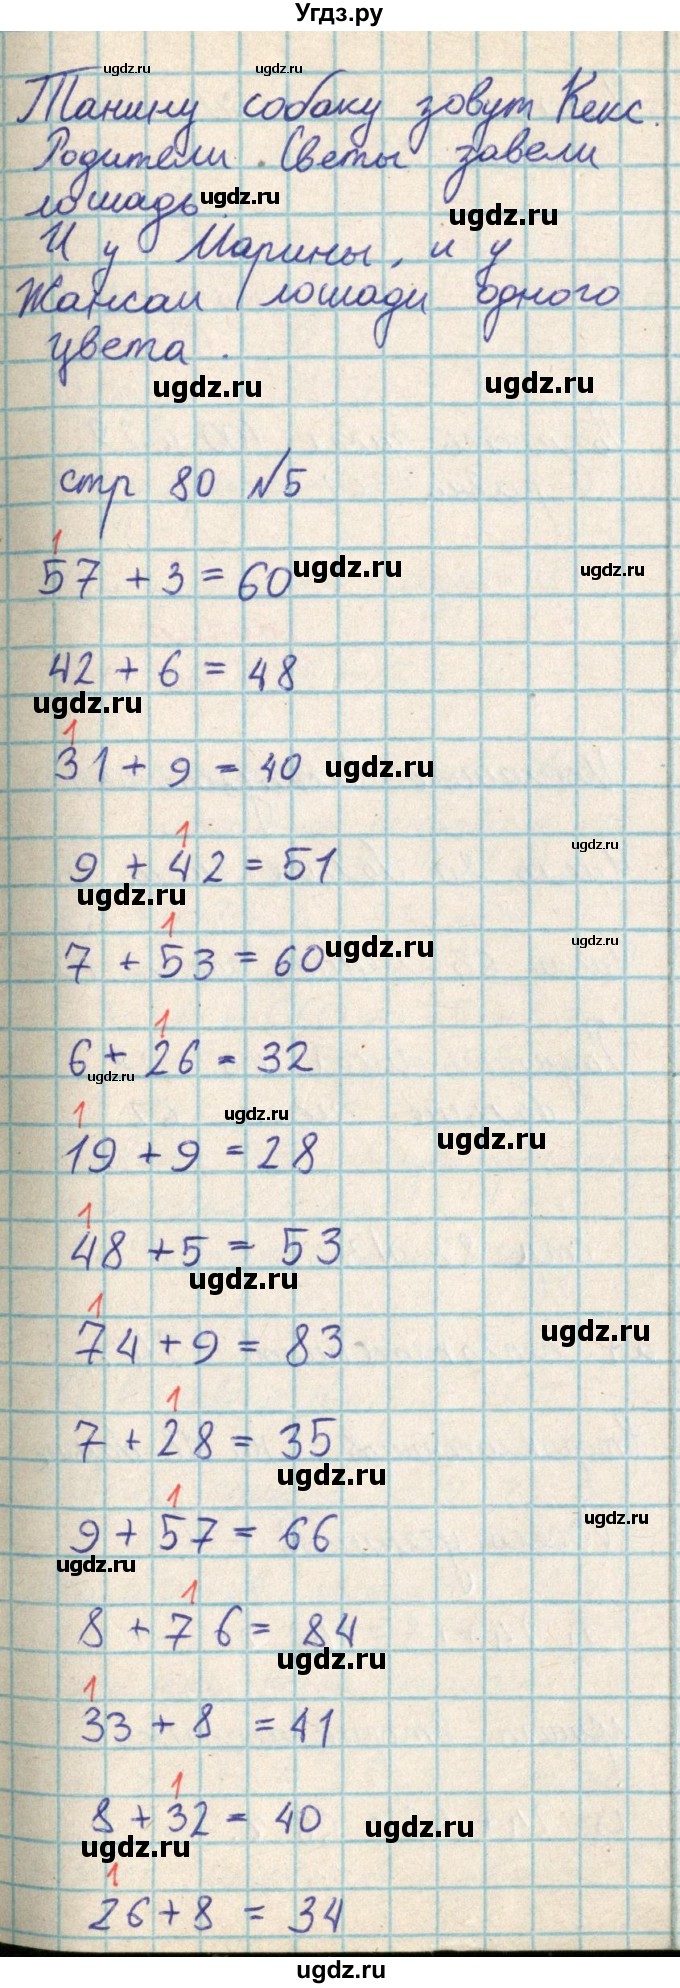 Угдз.ру
ugdz.ru ugdz.ru
Танину собаку зовут Кекс.
Родители Светы завели
лошадь. ugdz.ru ugdz.ru
И у Марины, и у
Жансаи лошади одного
цвета.
ugdz.ru ugdz.ru
стр 80 №5
1
57 + 3 = 60 ugdz.ru ugdz.ru
42 + 6 = 48
ugdz.ru
1
31 + 9 = 40 ugdz.ru
1
9 + 42 = 51 ugdz.ru
ugdz.ru
1
7 + 53 = 60 ugdz.ru ugdz.ru
1
6 + 26 = 32
ugdz.ru
1 ugdz.ru
19 + 9 = 28 ugdz.ru
1
48 + 5 = 53
ugdz.ru
1
74 + 9 = 83 ugdz.ru
1
7 + 28 = 35
ugdz.ru
1
9 + 57 = 66 ugdz.ru
ugdz.ru
1
8 + 76 = 84
ugdz.ru
1
33 + 8 = 41
1
8 + 32 = 40 ugdz.ru
ugdz.ru
1
26 + 8 = 34
ugdz.ru